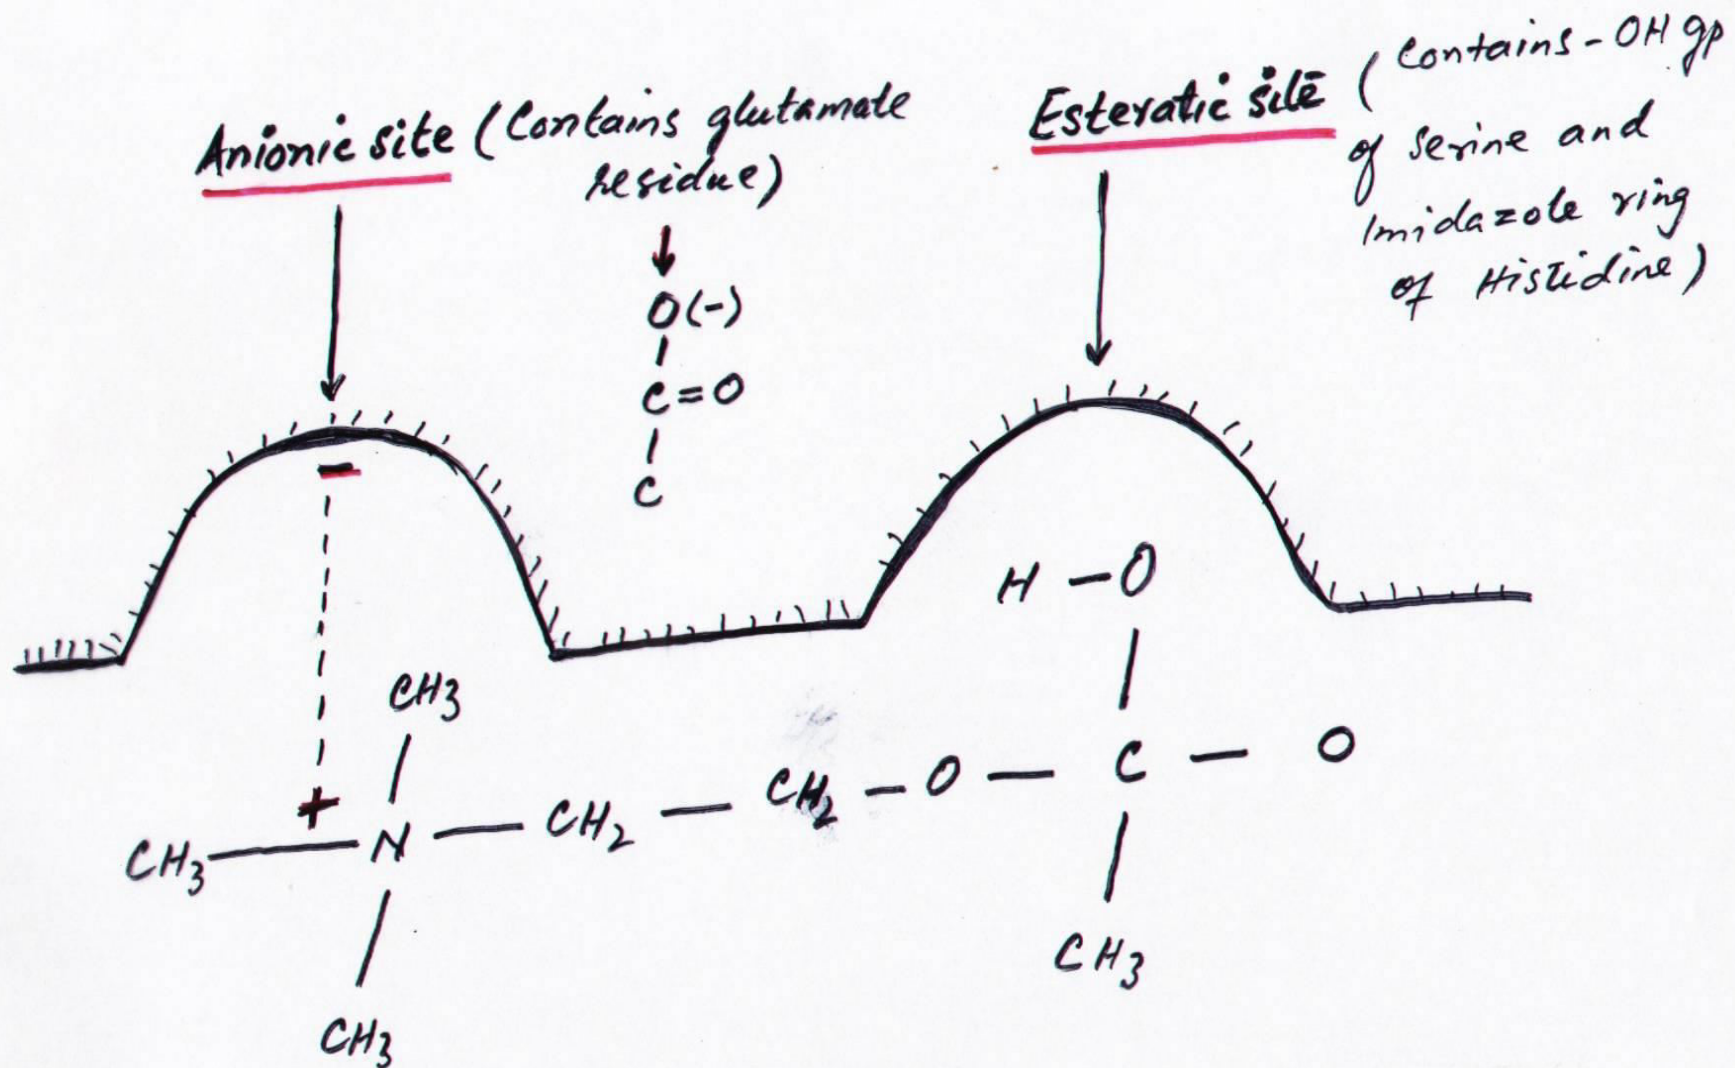 Anionic site (Contains glutamate
residue)
Esteratic site (Contains - OH gp
of serine and
Imidazole ring
of Histidine)
O(-)
C=O
C
−
H - O
CH3
+
CH3 N CH2 CH2 - O - C - O
CH3
CH3